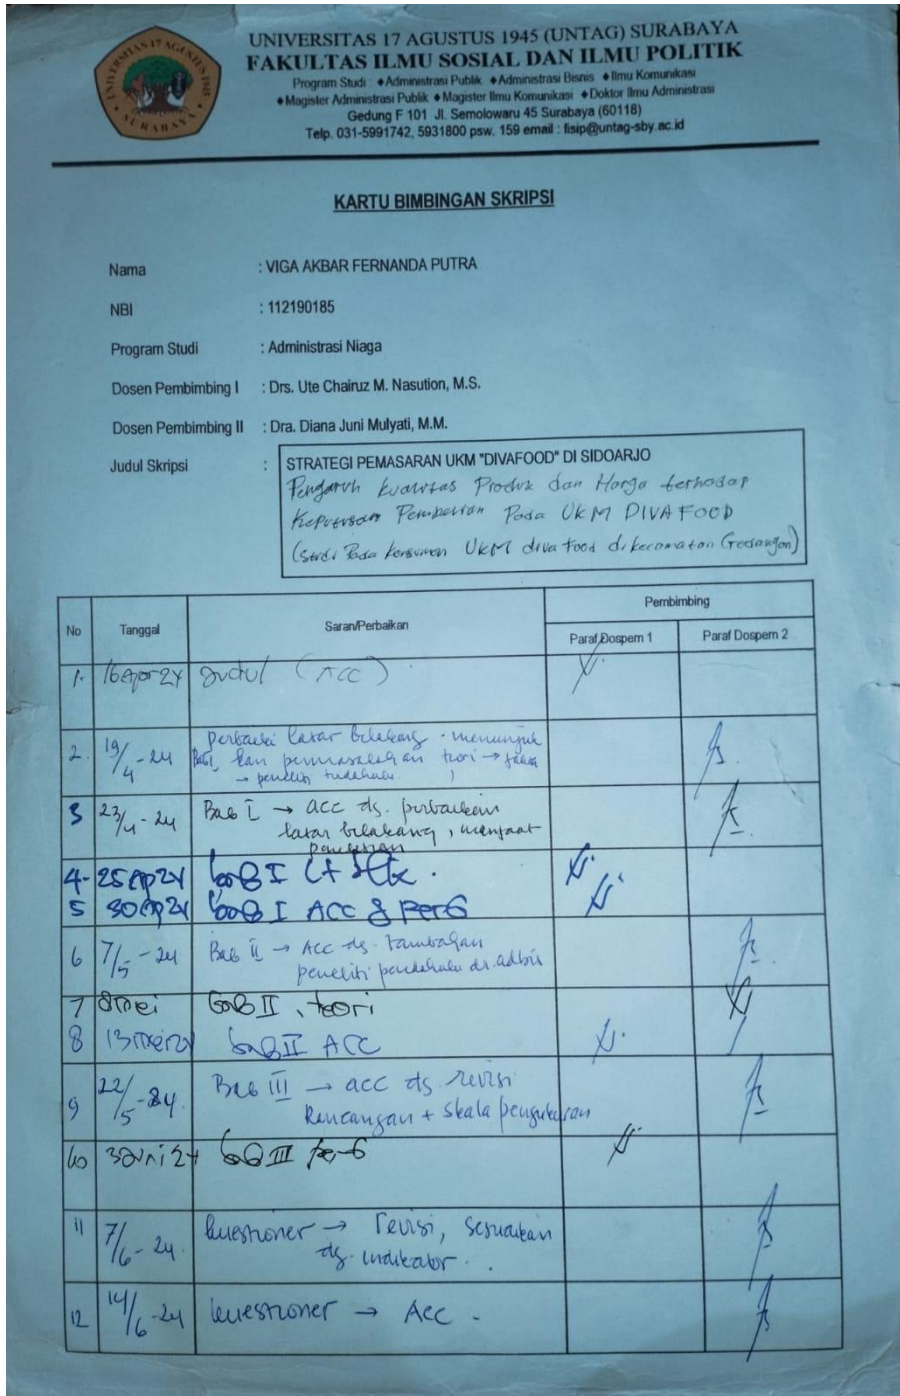 UNIVERSITAS 17 AGUSTUS 1945 (UNTAG) SURABAYA
FAKULTAS ILMU SOSIAL DAN ILMU POLITIK
Program Studi : ◆Administrasi Publik ◆Administrasi Bisnis ◆Ilmu Komunikasi
◆Magister Administrasi Publik ◆Magister Ilmu Komunikasi ◆Doktor Ilmu Administrasi
Gedung F 101 Jl. Semolowaru 45 Surabaya (60118)
Telp. 031-5991742, 5931800 psw. 159 email : fisip@untag-sby.ac.id
UNIVERSITAS 17 AGUSTUS 1945
SURABAYA
KARTU BIMBINGAN SKRIPSI
Nama : VIGA AKBAR FERNANDA PUTRA
NBI : 112190185
Program Studi : Administrasi Niaga
Dosen Pembimbing I : Drs. Ute Chairuz M. Nasution, M.S.
Dosen Pembimbing II : Dra. Diana Juni Mulyati, M.M.
Judul Skripsi : STRATEGI PEMASARAN UKM "DIVAFOOD" DI SIDOARJO
Pengaruh Kualitas Produk dan Harga terhadap
Keputusan Pembelian Pada UKM DIVA FOOD
(Studi Pada Konsumen UKM diva Food di kecamatan Gedangan)
No Tanggal Saran/Perbaikan Pembimbing
Paraf Dospem 1 Paraf Dospem 2
1. 16 Apr 24 Judul (ACC)
2. 19/4-24 perbaiki latar belakang . menunjuk
Bab I, kan permasalahan teori →
→ peneliti
3 23/4-24 Bab I → acc dg. perbaikan
latar belakang, manfaat
penelitian
4. 25 Ap 24 bab I
5 30 Ap 24 bab I ACC & Perb
6 7/5-24 Bab II → Acc dg. tambahan
peneliti pendahulu dr. adbis
7 8 mei bab II, teori
8 13 mei 24 bab II ACC
9 22/5-24. Bab III → acc dg. revisi
Rancangan + skala pengukuran
10 3 Juni 24 bab III perb
11 7/6-24. kuestioner → revisi, sesuaikan
dg. indikator.
12 14/6-24 kuestioner → Acc -